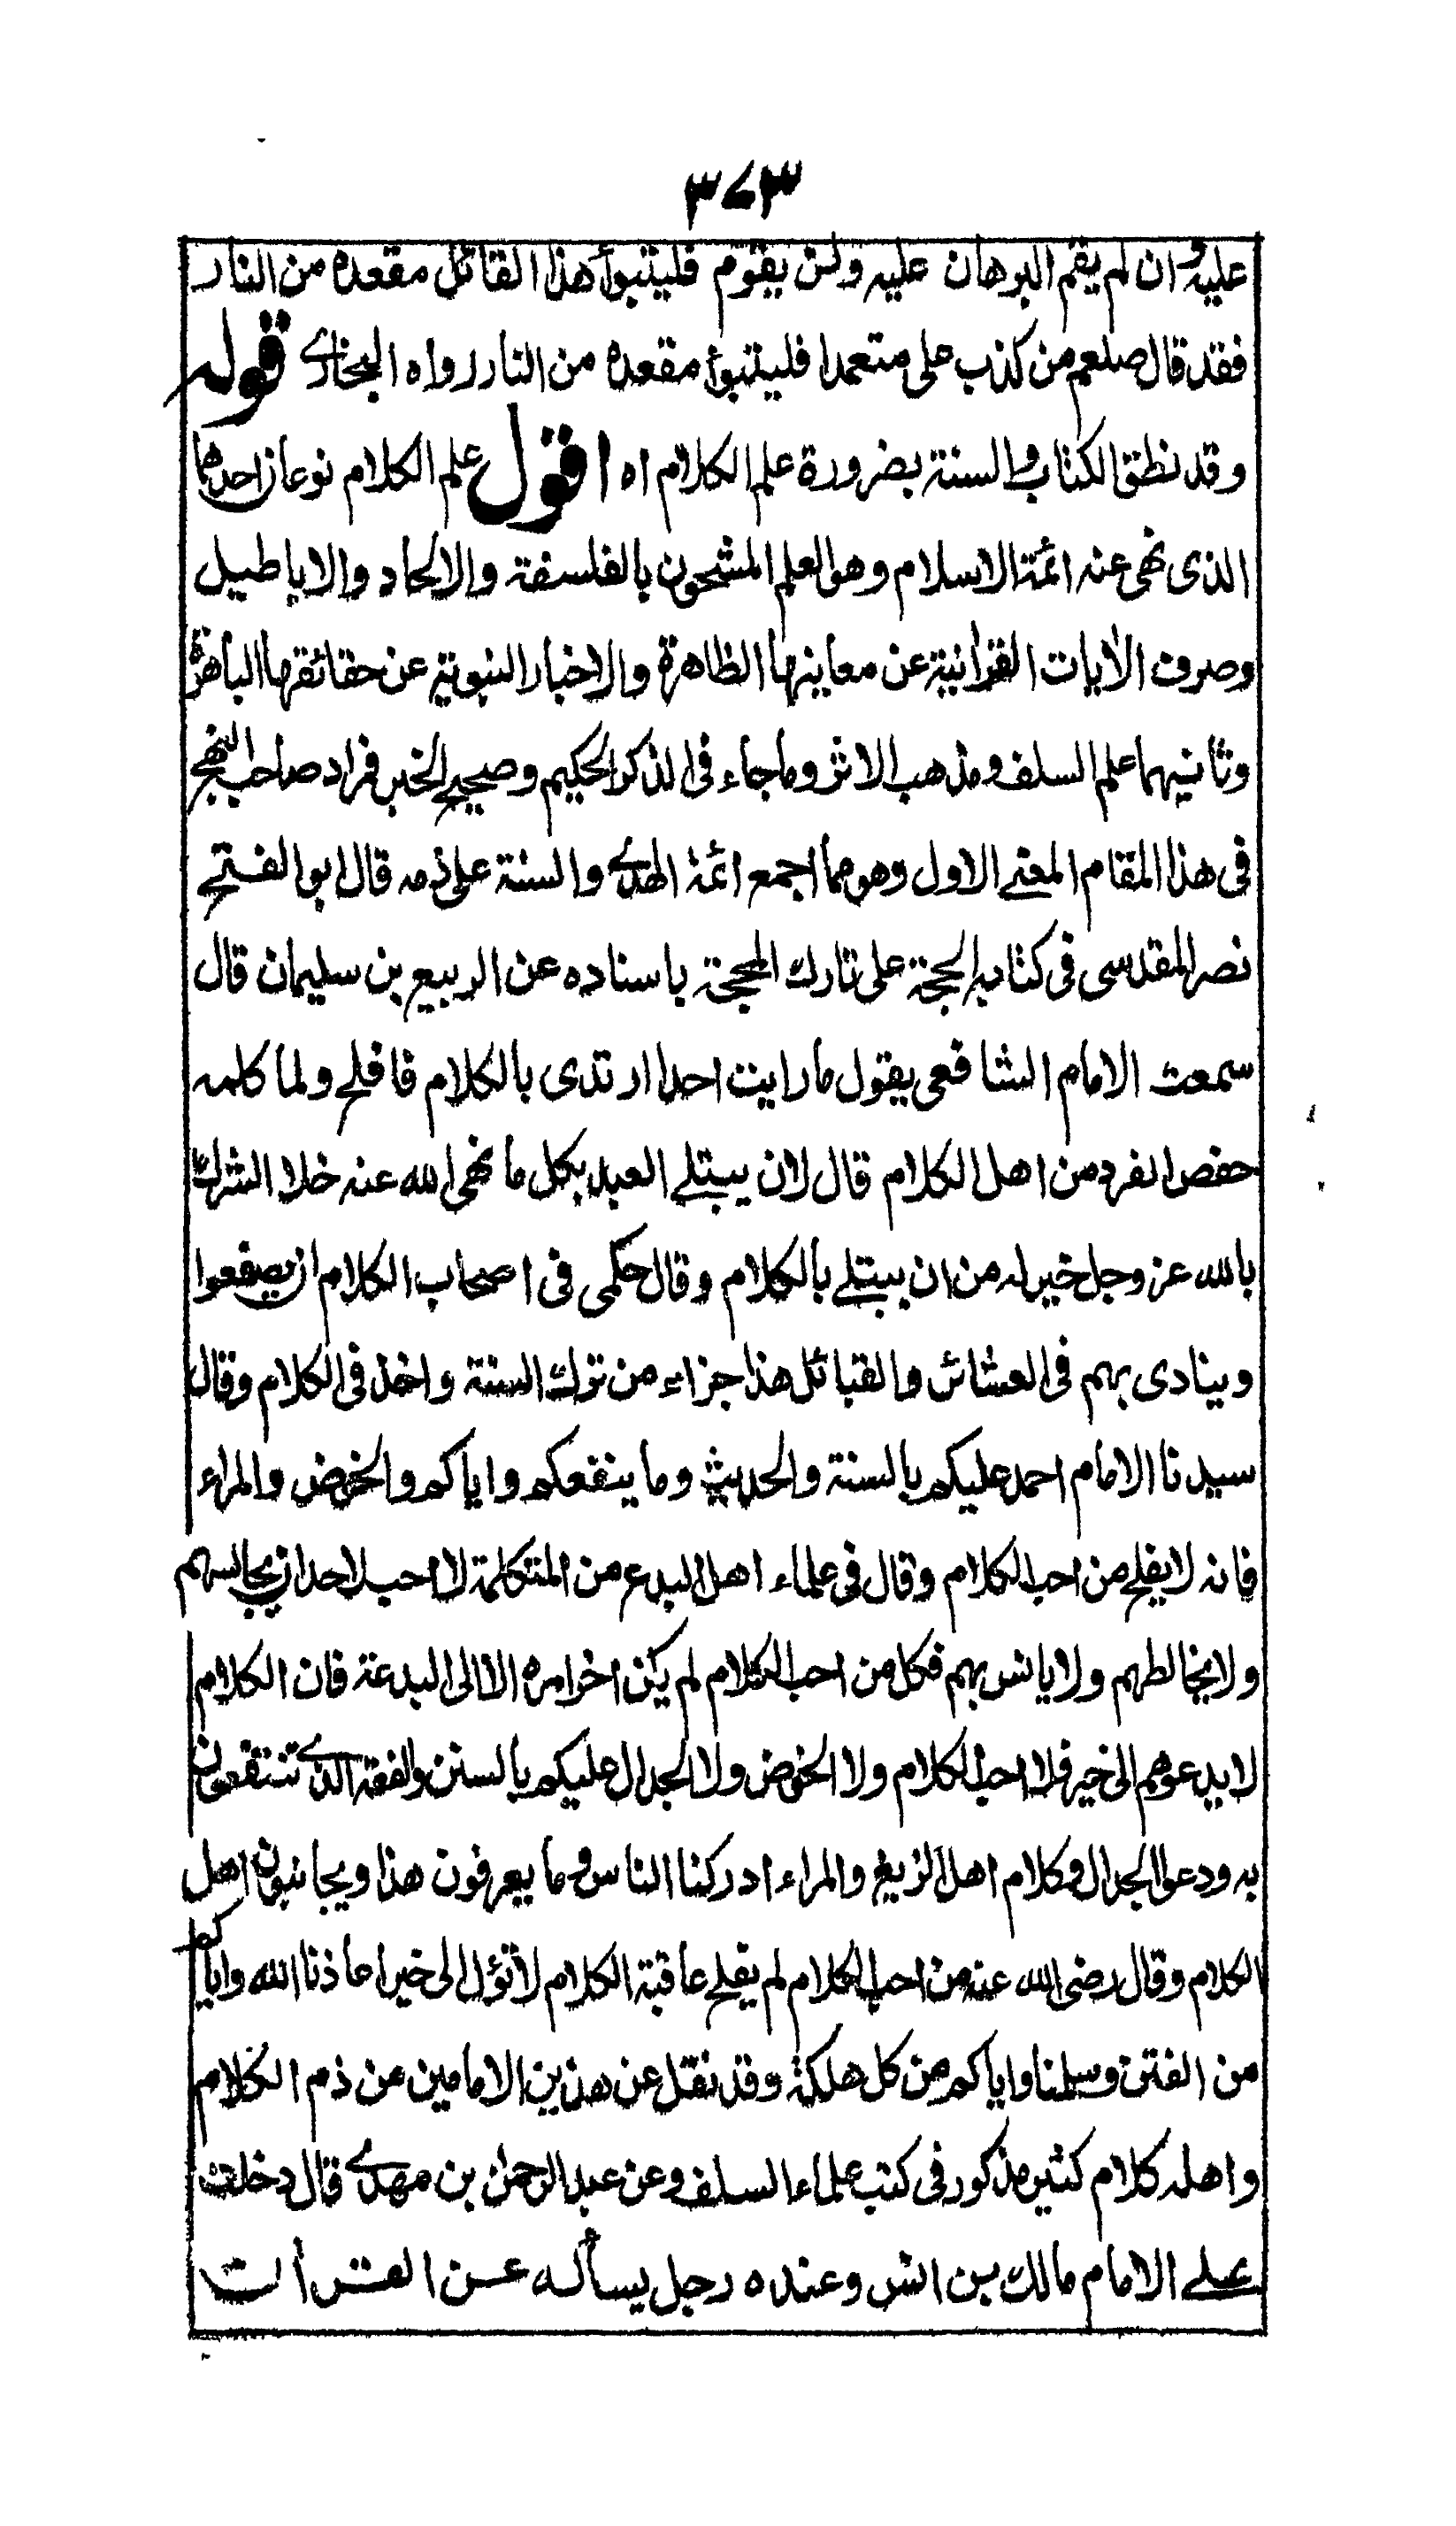 ٣٧٣
عليه وان لم يقم البرهان عليه ولن يقوم فليتبوأ هذا القائل مقعده من النار
فقد قال صلعم من كذب على متعمدا فليتبوأ مقعده من النار رواه البخاري قوله
وقد نطق الكتاب والسنة بضرورة علم الكلام اه اقول علم الكلام نوعان احدهما
الذى نهى عنه ائمة الاسلام وهو العلم المشحون بالفلسفة والالحاد والاباطيل
وصرف الآيات القرآنية عن معانيها الظاهرة والاخبار النبوية عن حقائقها الباهرة
وثانيهما علم السلف ومذهب الاثر وما جاء فى الذكر الحكيم وصحيح الخبر فمراد صاحب النهج
فى هذا المقام المعنى الاول وهو مما اجمع ائمة الهدى والسنة على ذمه قال ابو الفتح
نصر المقدسى فى كتابه الحجة على تارك المحجة باسناده عن الربيع بن سليمان قال
سمعت الامام الشافعى يقول ما رايت احدا ارتدى بالكلام فافلح ولما كلمه
حفص الفرد من اهل الكلام قال لان يبتلى العبد بكل ما نهى الله عنه خلا الشرك
بالله عز وجل خير له من ان يبتلى بالكلام وقال حكمى فى اصحاب الكلام ان يصفعوا
وينادى بهم فى العشائر والقبائل هذا جزاء من ترك السنة واخذ فى الكلام وقال
سيدنا الامام احمد عليكم بالسنة والحديث وما ينفعكم واياكم والخوض والمراء
فانه لا يفلح من احب الكلام وقال فى علماء اهل البدع من المتكلمة لا احب لاحد ان يجالسهم
ولا يخالطهم ولا يانس بهم فكل من احب الكلام لم يكن اخر امره الا الى البدعة فان الكلام
لا يدعوهم الى خير فلا احب الكلام ولا الخوض ولا الجدال عليكم بالسنن والفقه الذى تنتفعون
به ودعوا الجدال وكلام اهل الزيغ والمراء ادركنا الناس وما يعرفون هذا ويجانبون اهل
الكلام وقال رضى الله عنه من احب الكلام لم يفلح عاقبة الكلام لا تؤل الى خير اعاذنا الله واياكم
من الفتن وسلمنا واياكم من كل هلكة وقد نقل عن هذين الامامين من ذم الكلام
واهله كلام كثير مذكور فى كتب علماء السلف وعن عبد الرحمن بن مهدى قال دخلت
على الامام مالك بن انس وعنده رجل يسأله عن القرأت